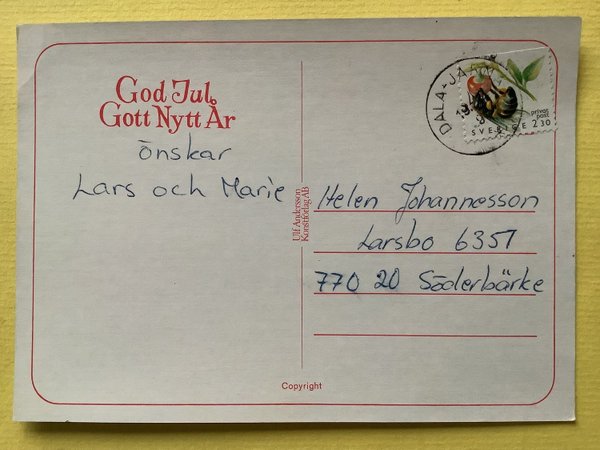 God Jul
Gott Nytt År
önskar
Lars och Marie
Ulf Andersson
Konstförlag AB
Helen Johannesson
Larsbo 6351
770 20 Söderbärke
DALA-JÄRNA
privat
post
SVERIGE 2.30
Copyright